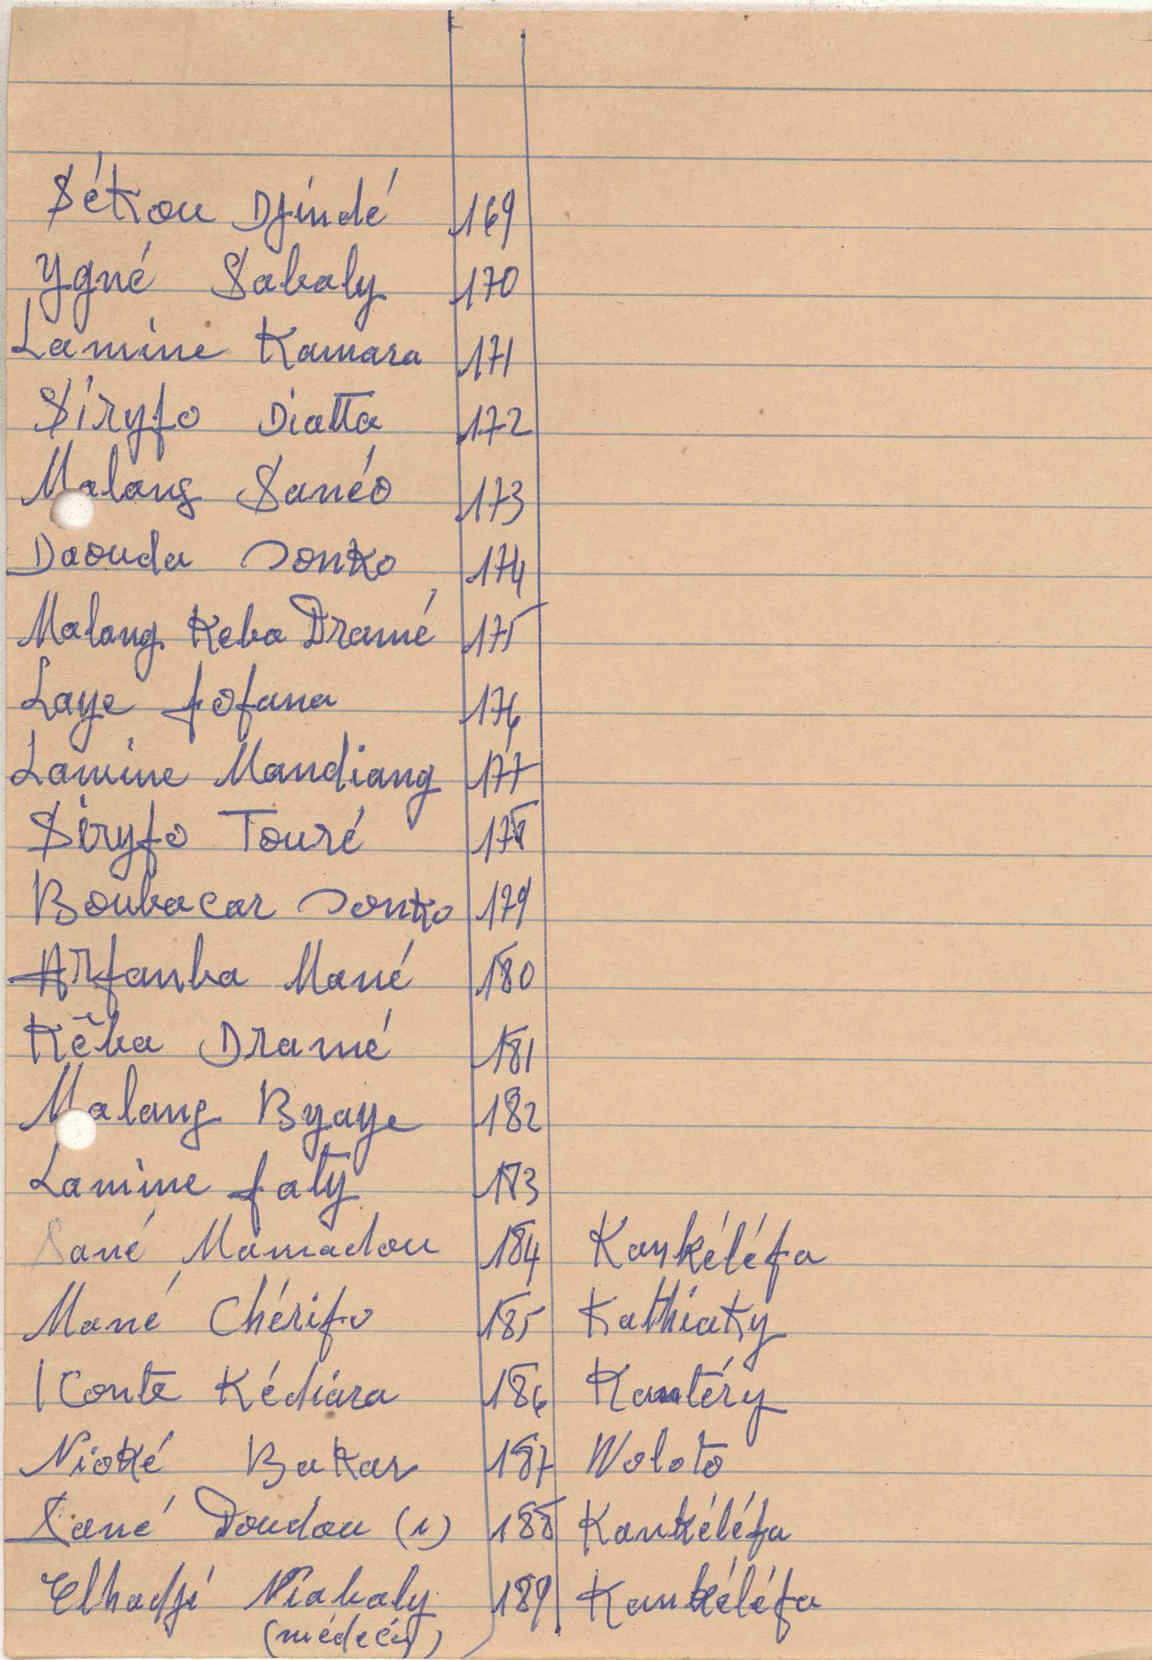 Sékou Djindé 169
Ygné Sabaly 170
Lamine Kamara 171
Siryfo Diatta 172
Malang Sanéo 173
Daouda Sonko 174
Malang Keba Dramé 175
Laye fofana 176
Lamine Mandiang 177
Siryfo Touré 178
Boubacar Sonko 179
Arfanba Mané 180
Kêba Dramé 181
Malang Byaye 182
Lamine faty 183
Sané Mamadou 184 Kankéléfa
Mané Chérifo 185 Kathiaky
Conte Kédiara 186 Kantéry
Nioké Bakar 187 Woloto
Sané Doudou (1) 188 Kankéléfa
Elhadji Niabaly 189 Kankéléfa
(médecin)